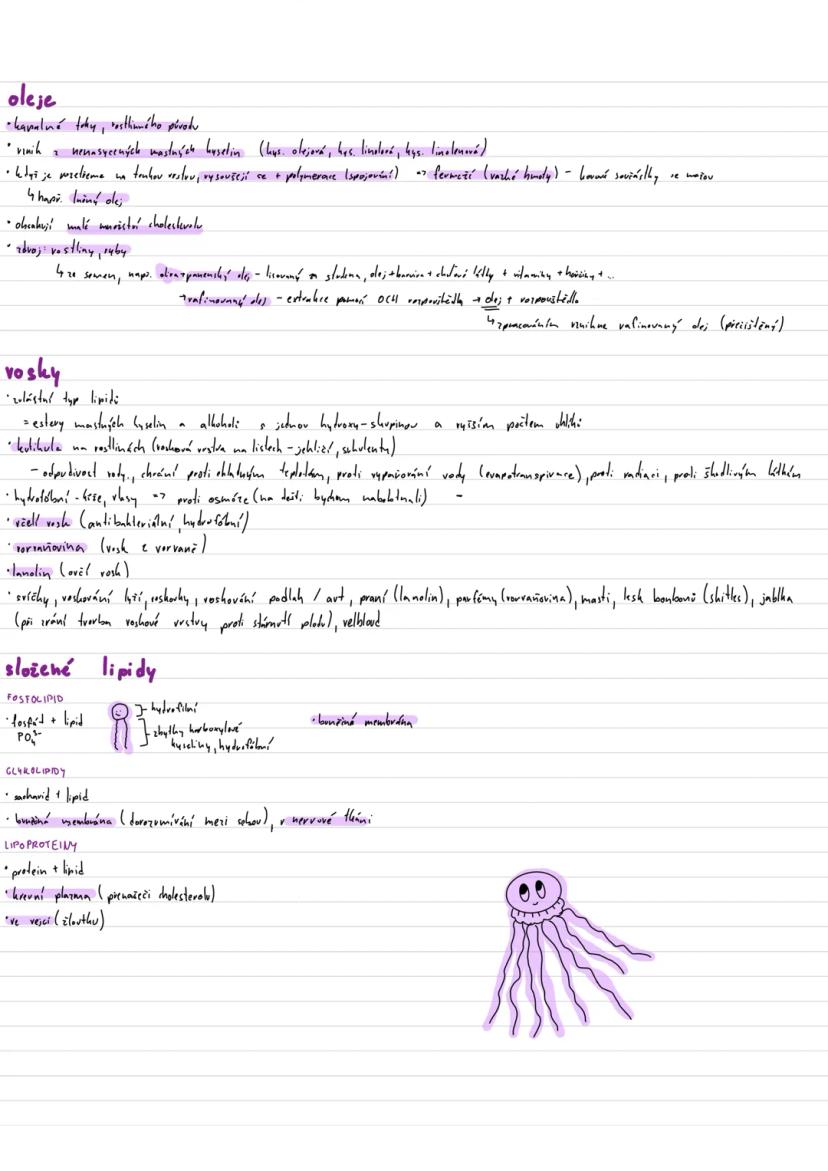 oleje
• kapalné tuky, rostlinného původu
• vznik z nenasycených mastných kyselin (kys. olejová, kys. linolová, kys. linolenová)
• když je rozetřeme na tenkou vrstvu, vysoušejí se + polymerace (spojování) => fermeží (vazké hmoty) – kovové součástky se mažou
↳ např. lněný olej
• obsahují malé množství cholesterolu
• zdroj: rostliny, ryby
↳ ze semen, např. olivapanenský olej – lisovaný za studena, olej + barviva + chuťové látky + vitamíny + hořčiny + ...
→ rafinovaný olej – extrakce pomocí OCH rozpouštědla → olej + rozpouštědlo
↳ zpracováním vznikne rafinovaný olej (přečištěný)
vosky
• zvláštní typ lipidů
= estery mastných kyselin a alkoholů s jednou hydroxy-skupinou a vyšším počtem uhlíků
• kutikula na rostlinách (vosková vrstva na listech – jehličí, sukulenty)
– odpudivost vody, chrání proti chladným teplotám, proti vypařování vody (evapotranspirace), proti radiaci, proti škodlivým látkám
• hydrofobní – kůže, vlasy => proti osmóze (na dešti bychom nabobtnali) –
• včelí vosk (antibakteriální, hydrofobní)
• vorvaňovina (vosk z vorvaně)
• lanolin (ovčí vosk)
• svíčky, voskování lyží, voskovky, voskování podlah / aut, praní (lanolin), parfémy (vorvaňovina), masti, lesk bonbonů (skitles), jablka
(při zrání tvorba voskové vrstvy proti stárnutí plodu), velbloud
složené lipidy
FOSFOLIPID
• fosfát + lipid
PO₄³⁻
hydrofilní
zbytky karboxylové
kyseliny, hydrofobní
• buněčná membrána
GLYKOLIPIDY
• sacharid + lipid
• buněčná membrána (dorozumívání mezi sebou), v nervové tkáni
LIPOPROTEINY
• protein + lipid
• krevní plazma (přenašeči cholesterolu)
• ve vejci (žloutku)